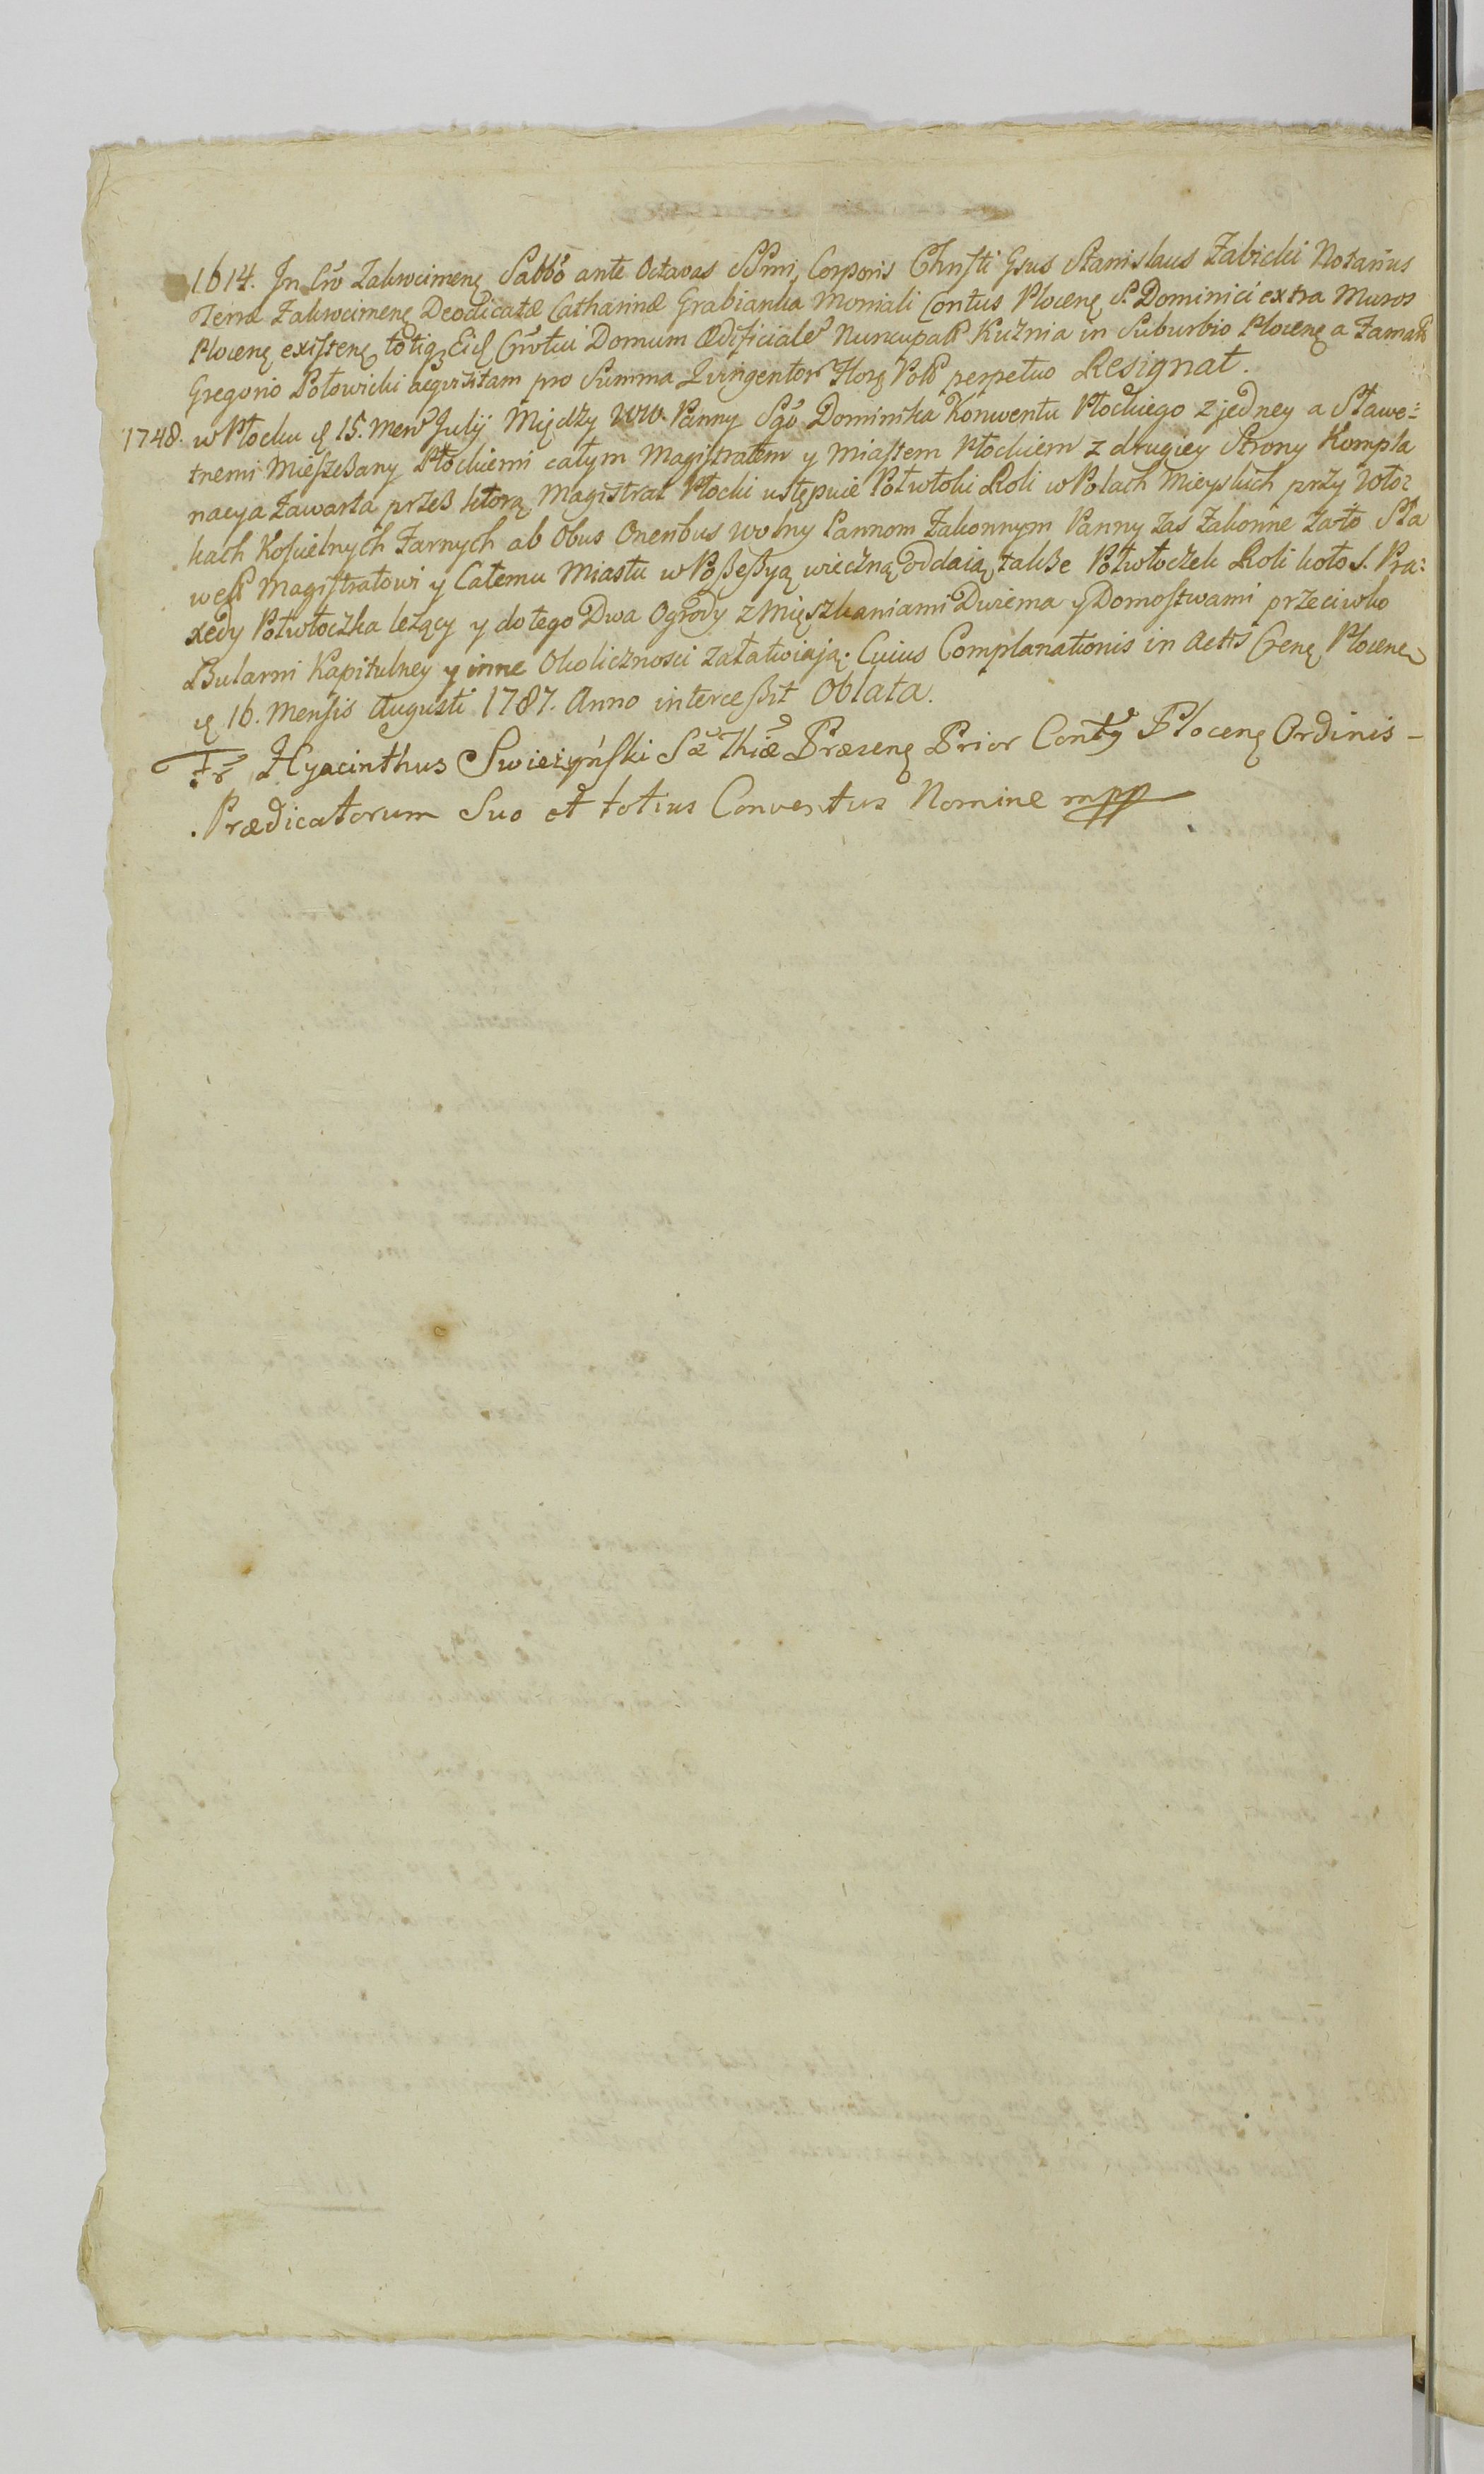 1614. In Crō Zakrocimenę Sabbō ante Octavas SSmi Corporis Christi Gsus Stanislaus Zabicki Notarius
Terræ Zakrocimenę Deodicatæ Catharinæ Grabianka Moniali Contus Plocenę S. Dominici extra Muros
Plocenę existenę totiq Eid Cōvtui Domum Ædificiale Nuncupat Kuźnia in Suburbio Plocenę a Famato
Gregorio Potowicki acqvisitam pro Summa Qvingentor Florę Pol perpetuo Resignat.
1748. w Płocku d 15. Men Julij Między WW. Panny Sgo Dominika Konwentu Płockiego z jedney a Sławe-
tnemi Mieszczany Płockiemi całym Magistratem y Miastem Płockiem z drugiey Strony Kompla
nacya Zawarta przeß którą Magistrat Płocki ustępuie Półwłoki Roli w Polach Mieyskich przy Wło-
kach Kościelnych Farnych ab Obus Oneribus wolny Pannom Zakonnym Panny zaś Zakonne Za to Sła
wetɫ Magistratowi y Całemu Miastu w Poßeßyą wieczną oddaią, takße Półwłoczek Roli koło S. Pra-
xedy Półwłoczka leżący y do tego Dwa Ogrody z Mięszkaniami Dwiema y Domostwami przeciwko
Bularni Kapitulney y inne Okoliczności załatwiają. Cuius Complanationis in Actis Crenę Plocenę
d 16. Mensis Augusti 1787. Anno interceßit Oblata.
Fr Hyacinthus Swieżyński S Thiæ Præsenę Prior Contg Plocenę Ordinis -
Prædicatorum Suo et totius Conventus Nomine mpp